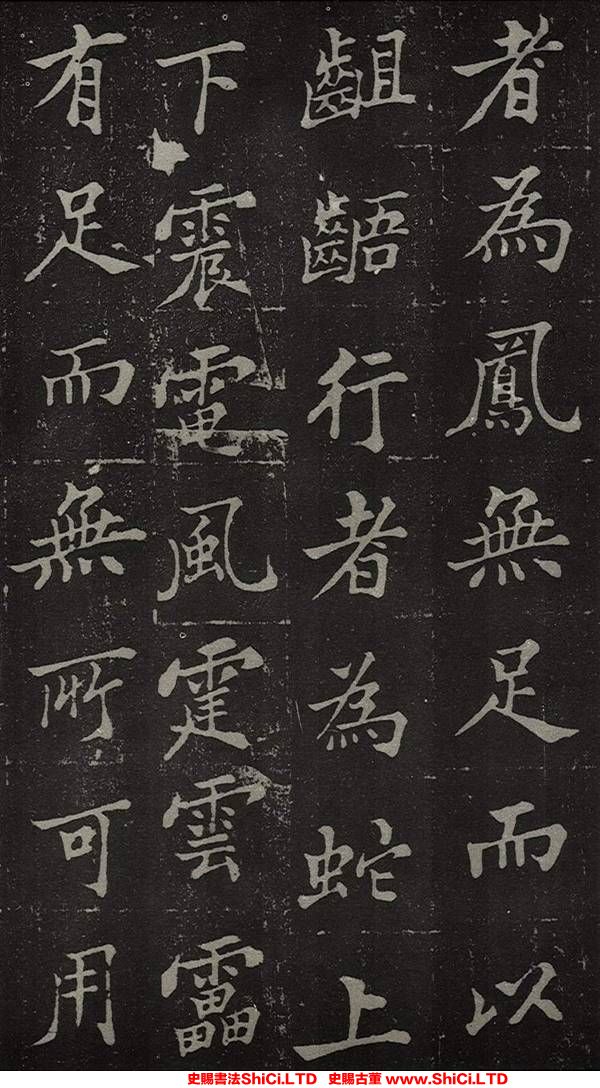 者為鳳無足而以
齟齬行者為蛇上
下震電風霆雲靁
有足而無所可用
史賜書法ShiCi.LTD 史賜古董 www.ShiCi.LTD